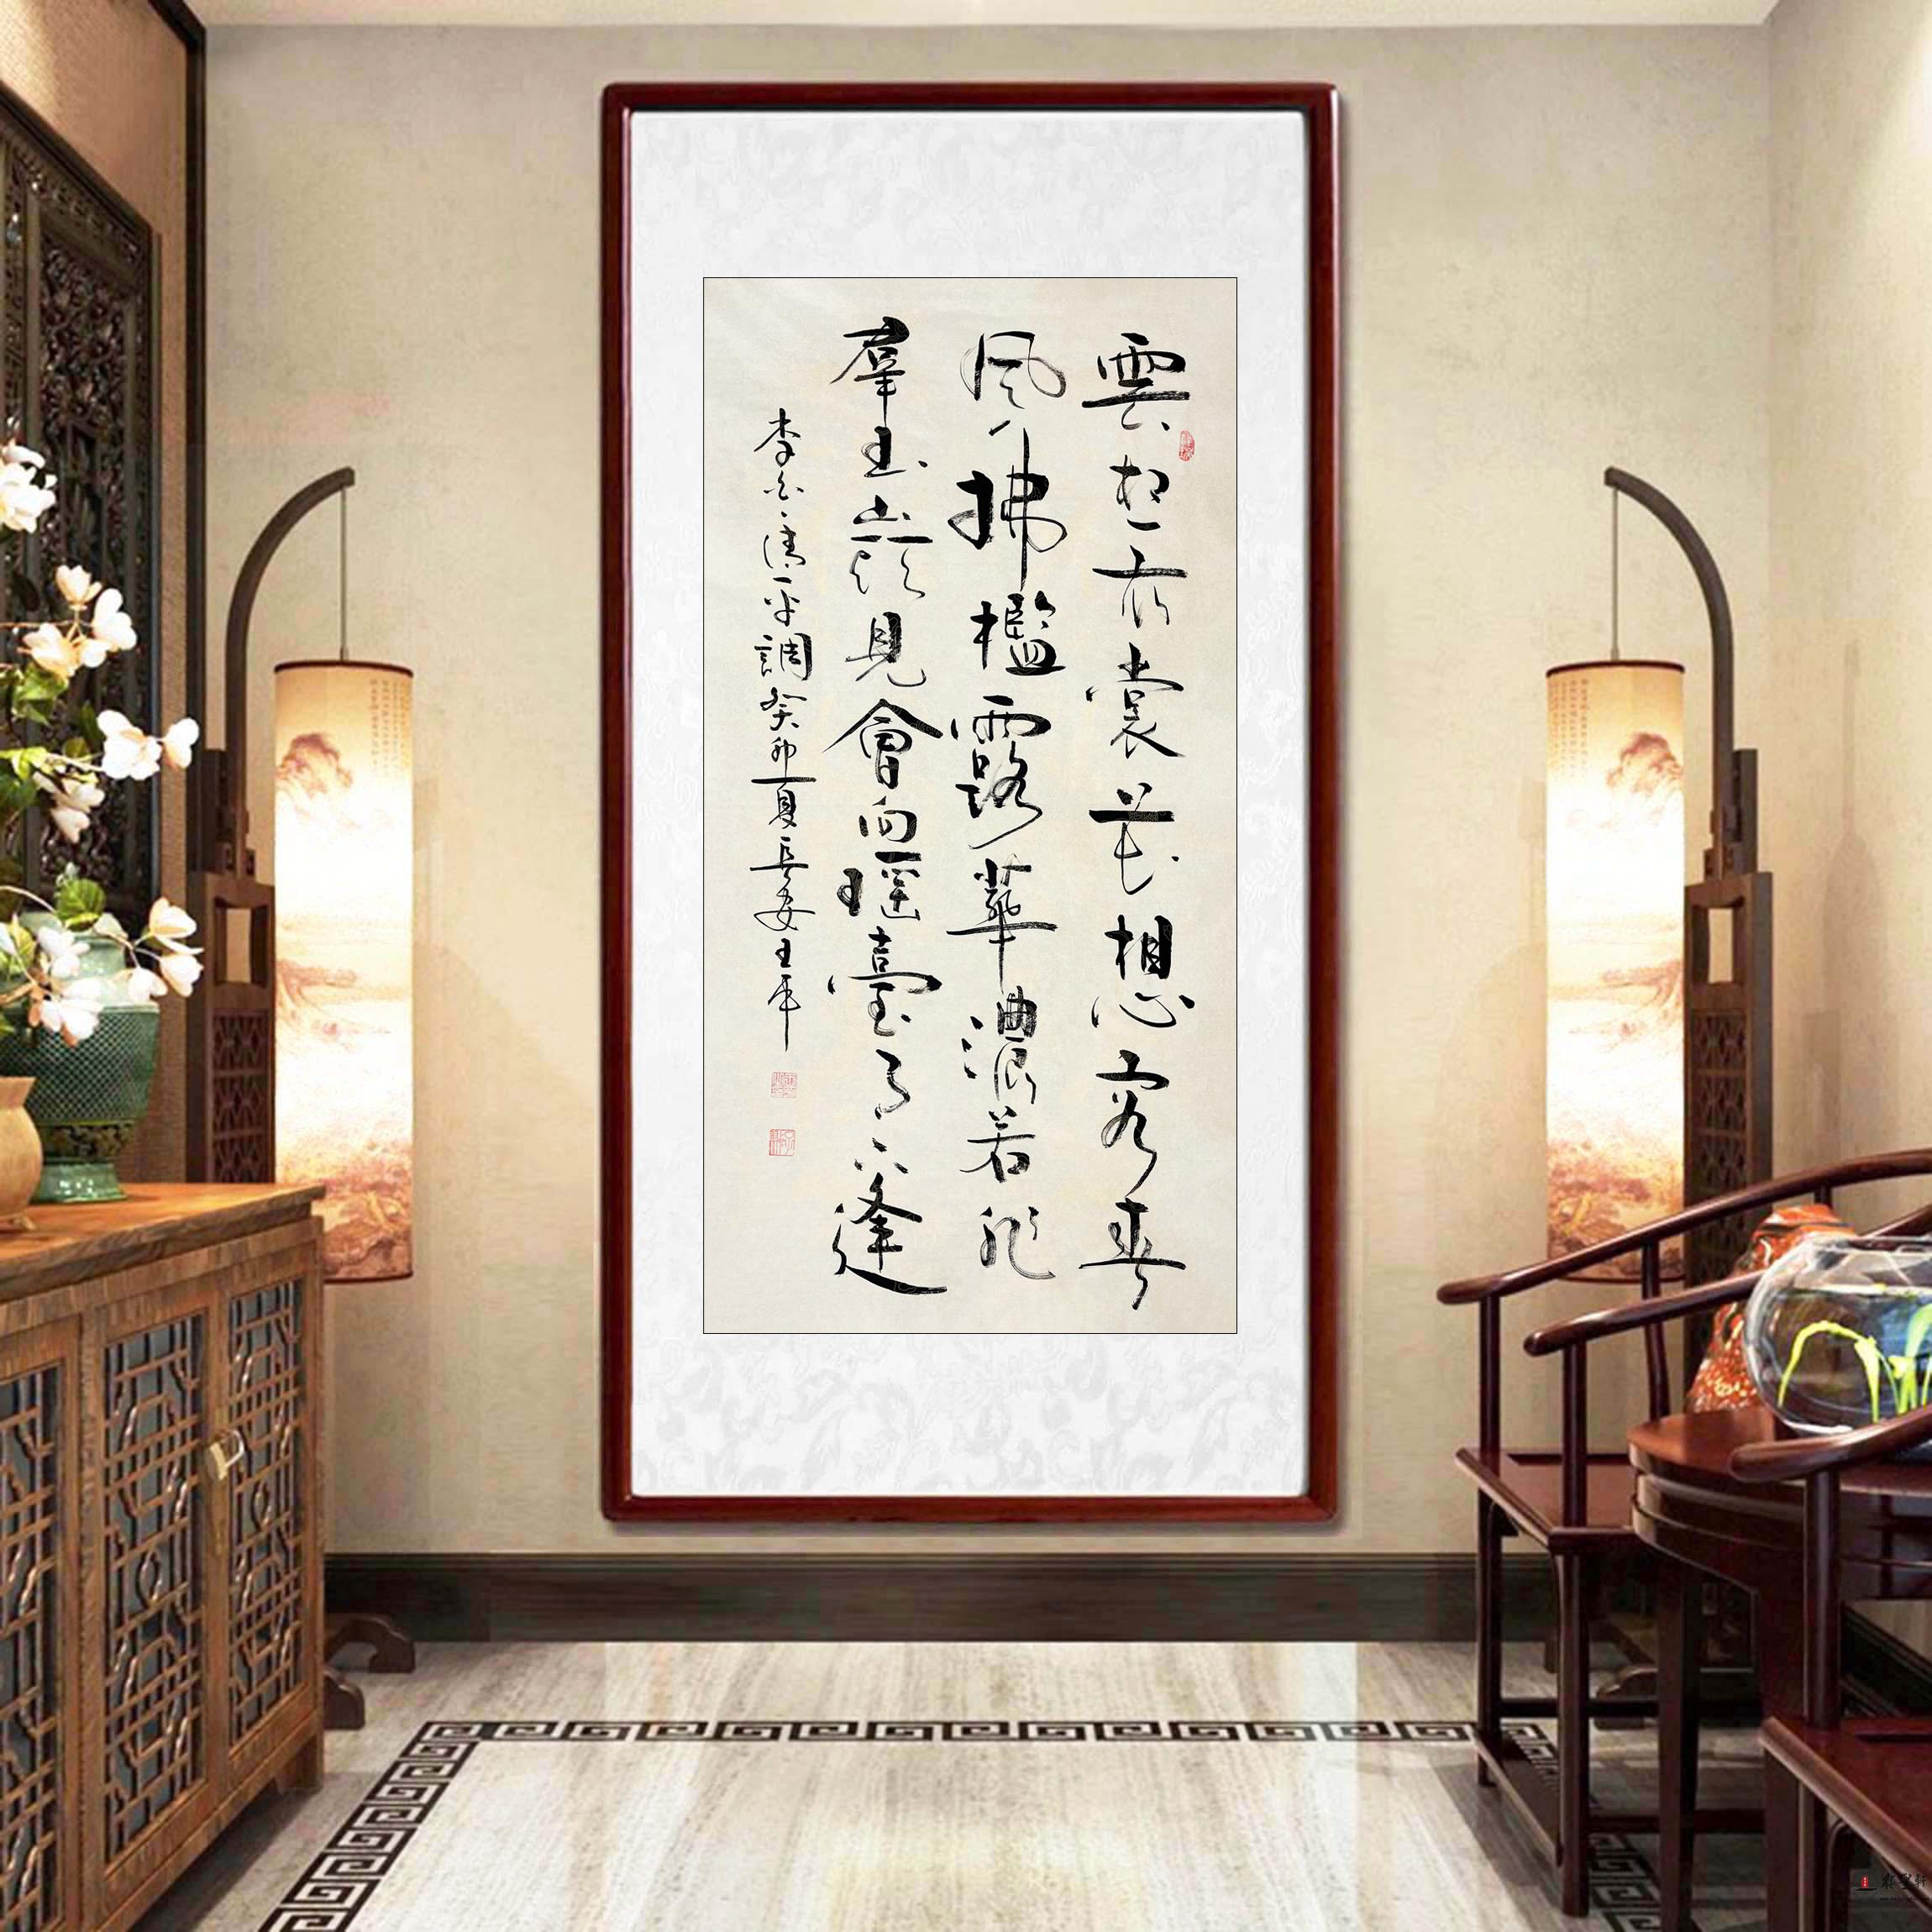 雲想衣裳花想容春
風拂檻露華濃若非
羣玉山頭見會向瑤臺月下逢
李白清平調癸卯夏長安王